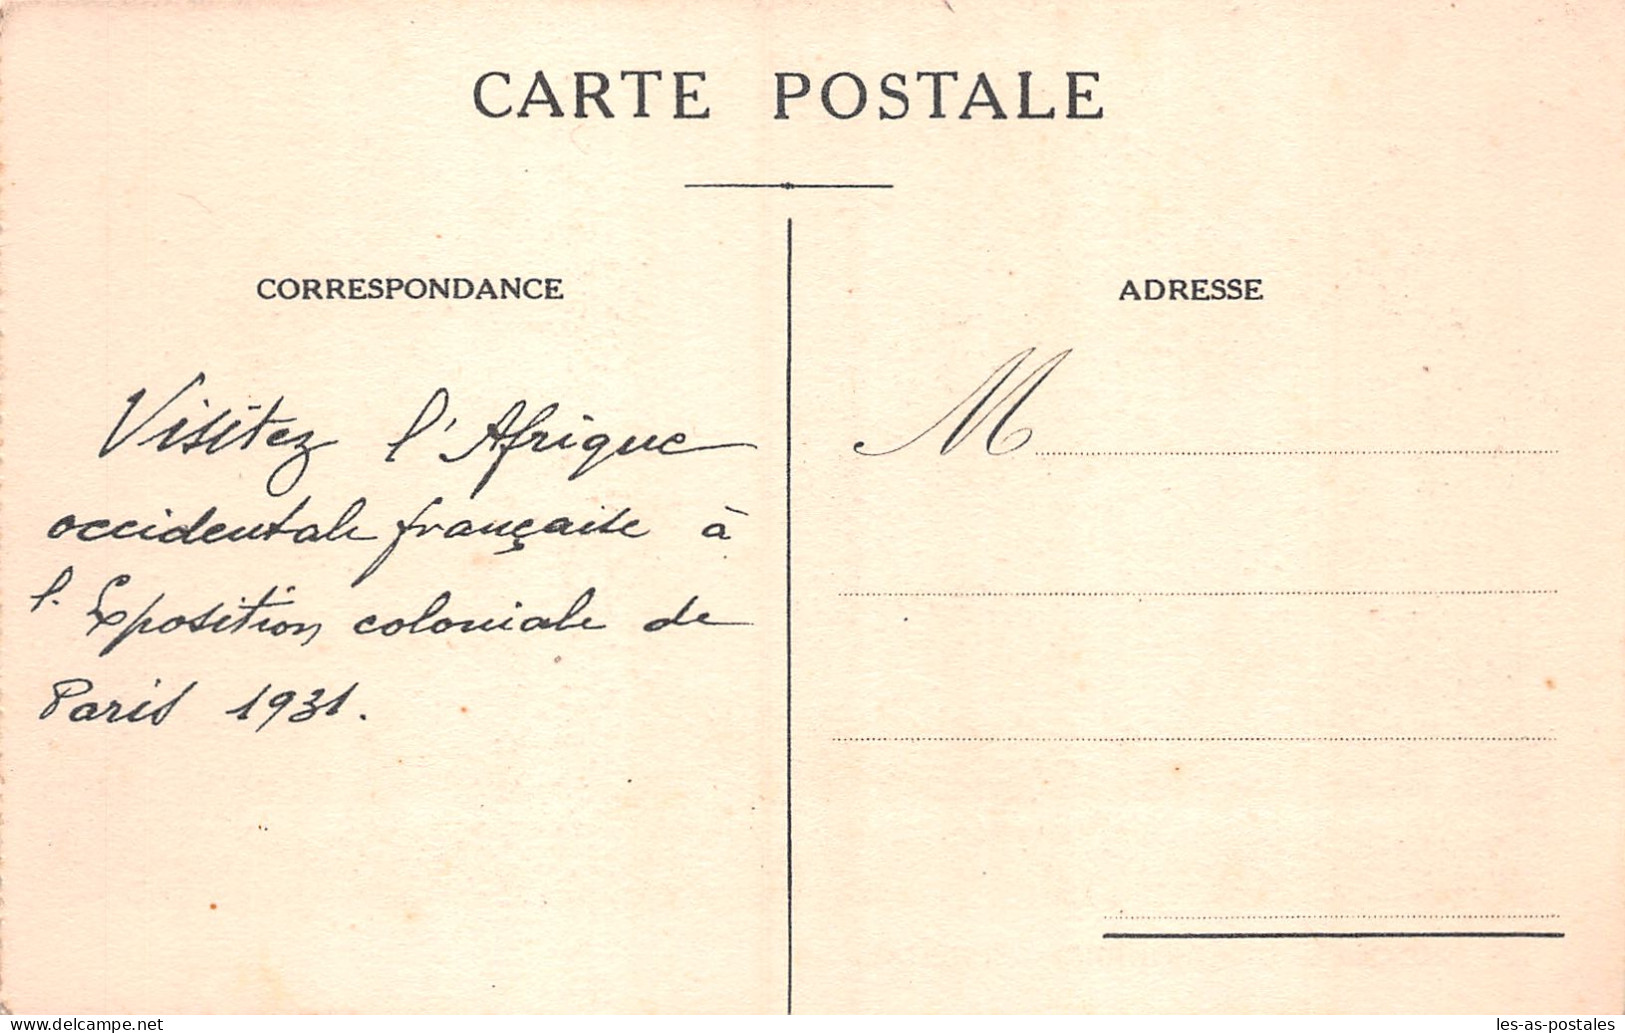 CARTE POSTALE
CORRESPONDANCE
ADRESSE
Visitez l'Afrique
occidentale française à
l'Exposition coloniale de
Paris 1931.
M
delcampe.net
les-as-postales